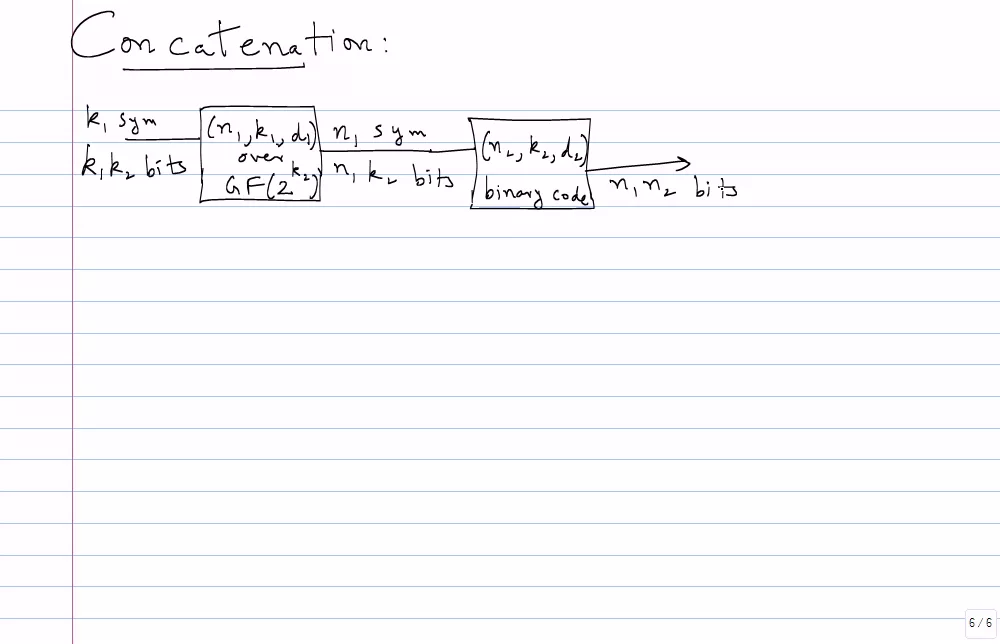 Concatenation:
k₁ sym
k₁k₂ bits
(n₁, k₁, d₁)
over
GF(2^k₂)
n₁ sym
n₁ k₂ bits
(n₂, k₂, d₂)
binary code
n₁n₂ bits
6 / 6